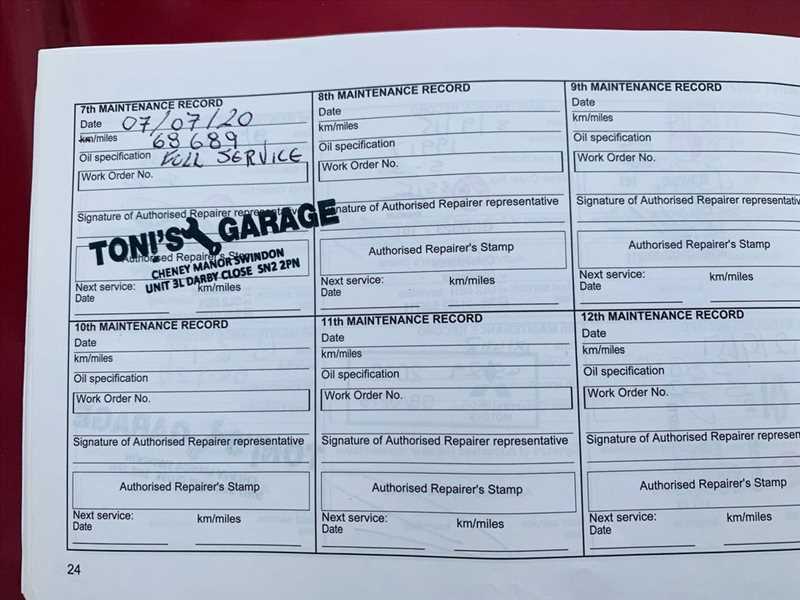 7th MAINTENANCE RECORD
Date 07/07/20
km/miles 68689
Oil specification FULL SERVICE
Work Order No.
Signature of Authorised Repairer representative
TONI'S GARAGE
CHENEY MANOR SWINDON
UNIT 3L DARBY CLOSE SN2 2PN
Authorised Repairer's Stamp
Next service:
Date km/miles
8th MAINTENANCE RECORD
Date
km/miles
Oil specification
Work Order No.
Signature of Authorised Repairer representative
Authorised Repairer's Stamp
Next service: km/miles
Date
9th MAINTENANCE RECORD
Date
km/miles
Oil specification
Work Order No.
Signature of Authorised Repairer
Authorised Repairer's Stamp
Next service: km/miles
Date
10th MAINTENANCE RECORD
Date
km/miles
Oil specification
Work Order No.
Signature of Authorised Repairer representative
Authorised Repairer's Stamp
Next service: km/miles
Date
11th MAINTENANCE RECORD
Date
km/miles
Oil specification
Work Order No.
Signature of Authorised Repairer representative
Authorised Repairer's Stamp
Next service: km/miles
Date
12th MAINTENANCE RECORD
Date
km/miles
Oil specification
Work Order No.
Signature of Authorised Repairer
Authorised Repairer's Stamp
Next service: km/miles
Date
24